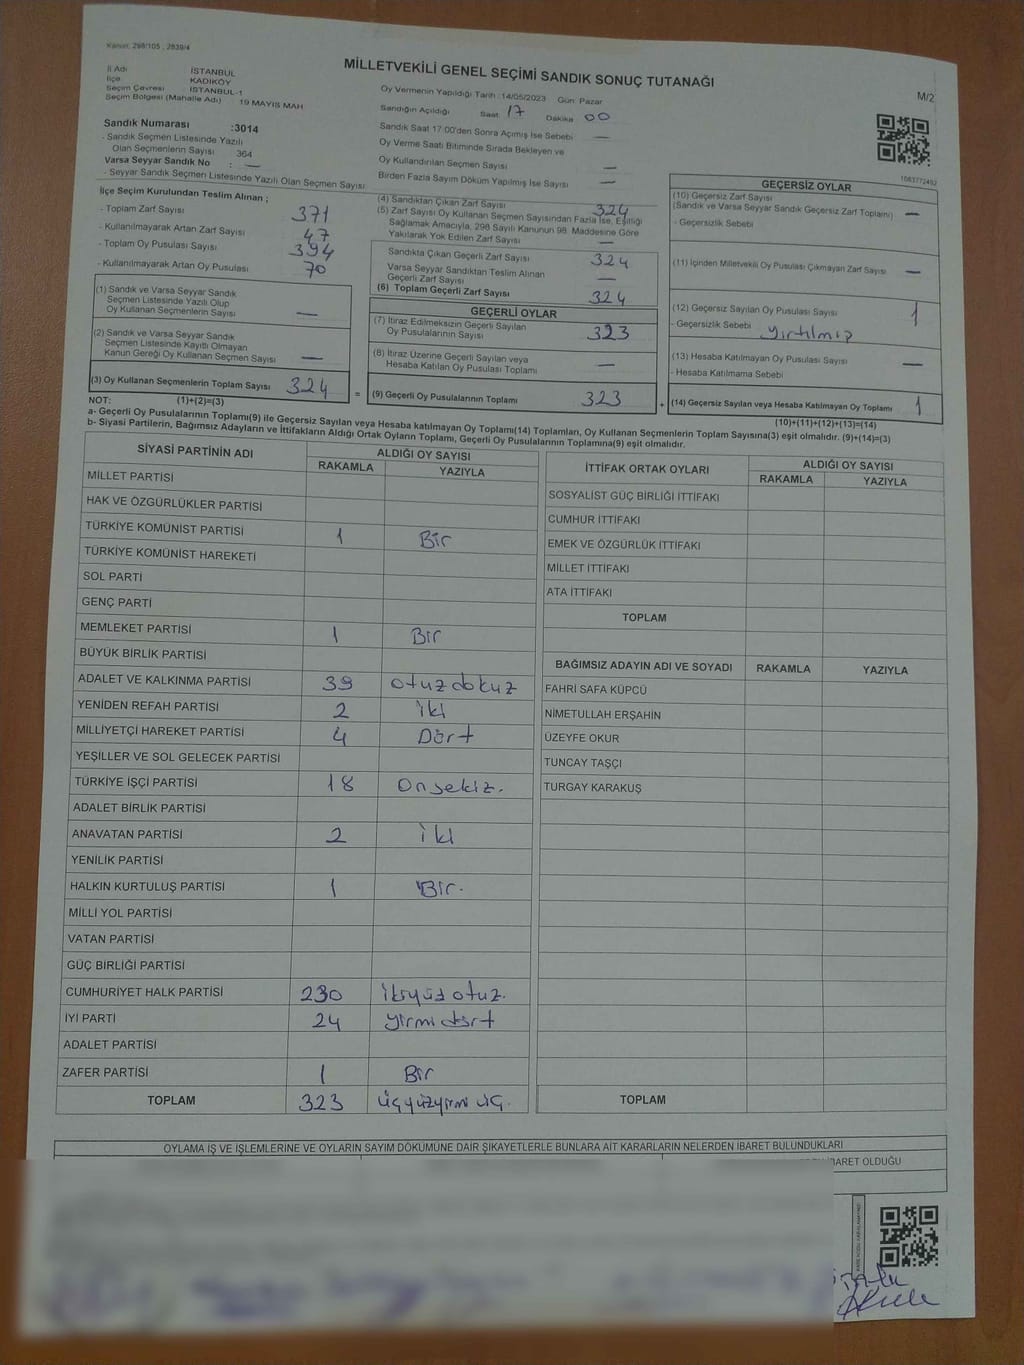 Kanun: 298/105 , 2839/4
MİLLETVEKİLİ GENEL SEÇİMİ SANDIK SONUÇ TUTANAĞI
M/2
İl Adı İSTANBUL
İlçe KADIKÖY
Seçim Çevresi : İSTANBUL-1
Seçim Bölgesi (Mahalle Adı) 19 MAYIS MAH
Sandık Numarası :3014
- Sandık Seçmen Listesinde Yazılı
Olan Seçmenlerin Sayısı 364
Varsa Seyyar Sandık No : —
- Seyyar Sandık Seçmen Listesinde Yazılı Olan Seçmen Sayısı
Oy Vermenin Yapıldığı Tarih :14/05/2023 Gün: Pazar
Sandığın Açıldığı Saat 17 Dakika 00
Sandık Saat 17:00'den Sonra Açımış İse Sebebi —
Oy Verme Saati Bitiminde Sırada Bekleyen ve
Oy Kullandırılan Seçmen Sayısı —
Birden Fazla Sayım Döküm Yapılmış İse Sayısı —
1663772492
İlçe Seçim Kurulundan Teslim Alınan ;
- Toplam Zarf Sayısı 371
- Kullanılmayarak Artan Zarf Sayısı 47
- Toplam Oy Pusulası Sayısı 394
- Kullanılmayarak Artan Oy Pusulası 70
(1) Sandık ve Varsa Seyyar Sandık
Seçmen Listesinde Yazılı Olup
Oy Kullanan Seçmenlerin Sayısı —
(2) Sandık ve Varsa Seyyar Sandık
Seçmen Listesinde Kayıtlı Olmayan
Kanun Gereği Oy Kullanan Seçmen Sayısı —
(3) Oy Kullanan Seçmenlerin Toplam Sayısı 324
(4) Sandıktan Çıkan Zarf Sayısı 324
(5) Zarf Sayısı Oy Kullanan Seçmen Sayısından Fazla İse, Eşitliği
Sağlamak Amacıyla, 298 Sayılı Kanunun 98. Maddesine Göre
Yakılarak Yok Edilen Zarf Sayısı —
Sandıkta Çıkan Geçerli Zarf Sayısı 324
Varsa Seyyar Sandıktan Teslim Alınan
Geçerli Zarf Sayısı —
(6) Toplam Geçerli Zarf Sayısı 324
GEÇERLİ OYLAR
(7) İtiraz Edilmeksizin Geçerli Sayılan
Oy Pusulalarının Sayısı 323
(8) İtiraz Üzerine Geçerli Sayılan veya
Hesaba Katılan Oy Pusulası Toplamı —
= (9) Geçerli Oy Pusulalarının Toplamı 323
GEÇERSİZ OYLAR
(10) Geçersiz Zarf Sayısı
(Sandık ve Varsa Seyyar Sandık Geçersiz Zarf Toplamı) —
- Geçersizlik Sebebi
(11) İçinden Milletvekili Oy Pusulası Çıkmayan Zarf Sayısı —
(12) Geçersiz Sayılan Oy Pusulası Sayısı 1
- Geçersizlik Sebebi yırtılmış
(13) Hesaba Katılmayan Oy Pusulası Sayısı —
- Hesaba Katılmama Sebebi
+ (14) Geçersiz Sayılan veya Hesaba Katılmayan Oy Toplamı 1
NOT: (1)+(2)=(3) (10)+(11)+(12)+(13)=(14)
a- Geçerli Oy Pusulalarının Toplamı(9) ile Geçersiz Sayılan veya Hesaba katılmayan Oy Toplamı(14) Toplamları, Oy Kullanan Seçmenlerin Toplam Sayısına(3) eşit olmalıdır. (9)+(14)=(3)
b- Siyasi Partilerin, Bağımsız Adayların ve İttifakların Aldığı Ortak Oyların Toplamı, Geçerli Oy Pusulalarının Toplamına(9) eşit olmalıdır.
SİYASİ PARTİNİN ADI ALDIĞI OY SAYISI
RAKAMLA YAZIYLA
MİLLET PARTİSİ
HAK VE ÖZGÜRLÜKLER PARTİSİ
TÜRKİYE KOMÜNİST PARTİSİ 1 Bir
TÜRKİYE KOMÜNİST HAREKETİ
SOL PARTİ
GENÇ PARTİ
MEMLEKET PARTİSİ 1 Bir
BÜYÜK BİRLİK PARTİSİ
ADALET VE KALKINMA PARTİSİ 39 otuzdokuz
YENİDEN REFAH PARTİSİ 2 iki
MİLLİYETÇİ HAREKET PARTİSİ 4 Dört
YEŞİLLER VE SOL GELECEK PARTİSİ
TÜRKİYE İŞÇİ PARTİSİ 18 Onsekiz.
ADALET BİRLİK PARTİSİ
ANAVATAN PARTİSİ 2 iki
YENİLİK PARTİSİ
HALKIN KURTULUŞ PARTİSİ 1 Bir.
MİLLİ YOL PARTİSİ
VATAN PARTİSİ
GÜÇ BİRLİĞİ PARTİSİ
CUMHURİYET HALK PARTİSİ 230 ikiyüzotuz.
İYİ PARTİ 24 yirmidört
ADALET PARTİSİ
ZAFER PARTİSİ 1 Bir
TOPLAM 323 üçyüzyirmi üç.
İTTİFAK ORTAK OYLARI ALDIĞI OY SAYISI
RAKAMLA YAZIYLA
SOSYALİST GÜÇ BİRLİĞİ İTTİFAKI
CUMHUR İTTİFAKI
EMEK VE ÖZGÜRLÜK İTTİFAKI
MİLLET İTTİFAKI
ATA İTTİFAKI
TOPLAM
BAĞIMSIZ ADAYIN ADI VE SOYADI RAKAMLA YAZIYLA
FAHRİ SAFA KÜPCÜ
NİMETULLAH ERŞAHİN
ÜZEYFE OKUR
TUNCAY TAŞÇI
TURGAY KARAKUŞ
TOPLAM
OYLAMA İŞ VE İŞLEMLERİNE VE OYLARIN SAYIM DÖKÜMÜNE DAİR ŞİKAYETLERLE BUNLARA AİT KARARLARIN NELERDEN İBARET BULUNDUKLARI
İBARET OLDUĞU